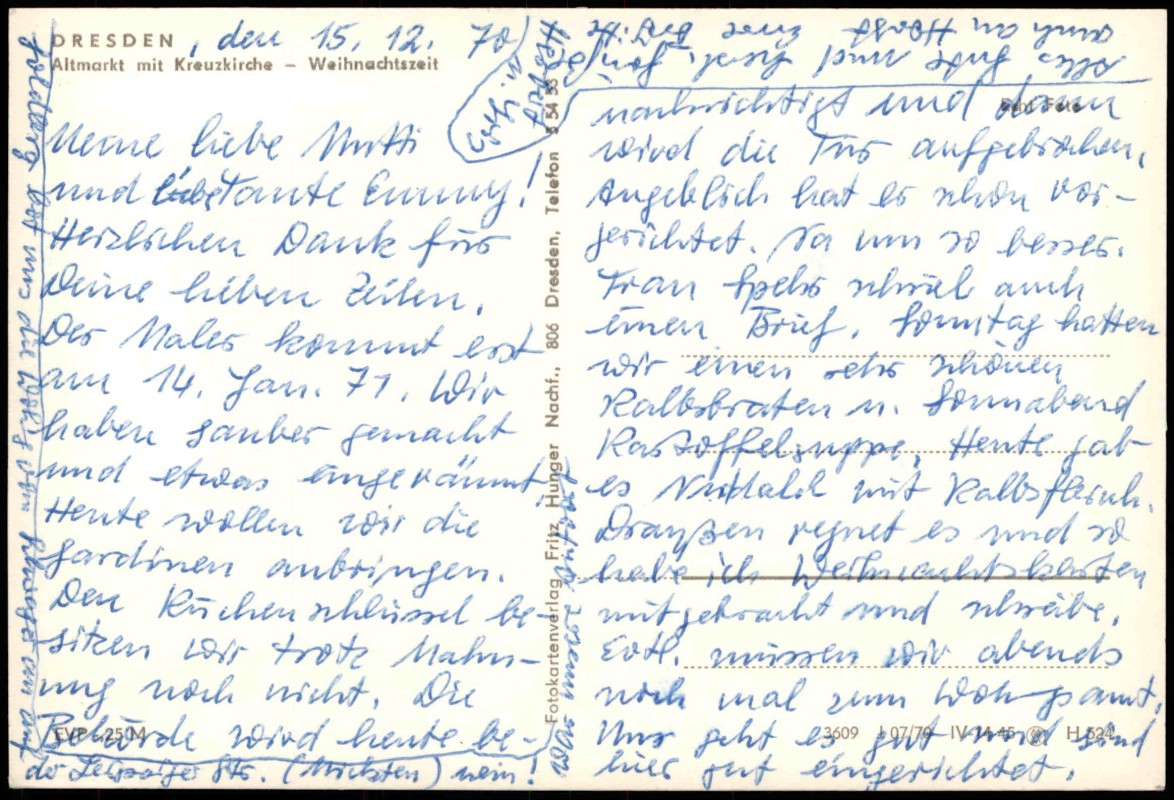 DRESDEN, den 15. 12. 70
Altmarkt mit Kreuzkirche – Weihnachtszeit
Meine liebe Mutti
und liebe Tante Emmy!
Herzlichen Dank für
Deine lieben Zeilen.
Der Maler kommt erst
am 14. Jan. 71. Wir
haben sauber gemacht
und etwas eingeräumt
Heute wollen wir die
Gardinen anbringen.
Den Küchenschlüssel be-
sitzen wir trotz Mahn-
ung noch nicht. Die
Behörde wird heute be-
nachrichtigt und dann
wird die Tür aufgebrochen.
Angeblich hat er schon vor-
gerichtet. Na um so besser.
Frau Spehr schrieb auch
einen Brief. Sonntag hatten
wir einen sehr schönen
Kalbsbraten u. Sonnabend
Kartoffelsuppe. Heute gab
es Nudeln mit Kalbsfleisch.
Draußen regnet es und so
habe ich Weihnachtskarten
mitgebracht und schreibe.
Evtl. müssen wir abends
noch mal zum Wohngsamt.
Uns geht es gut und sind
hier gut eingerichtet.
Alles Gute und herzl.
auch an Horst Eure
bot uns die
Schwiegern auf
der Leipziger Str. (Mickten) nein!
Fotokartenverlag Fritz Hunger Nachf., 806 Dresden, Telefon 5 54 53
Echt Foto
EVP -.25 M
3609 J 07/70 IV-14-45 H 524